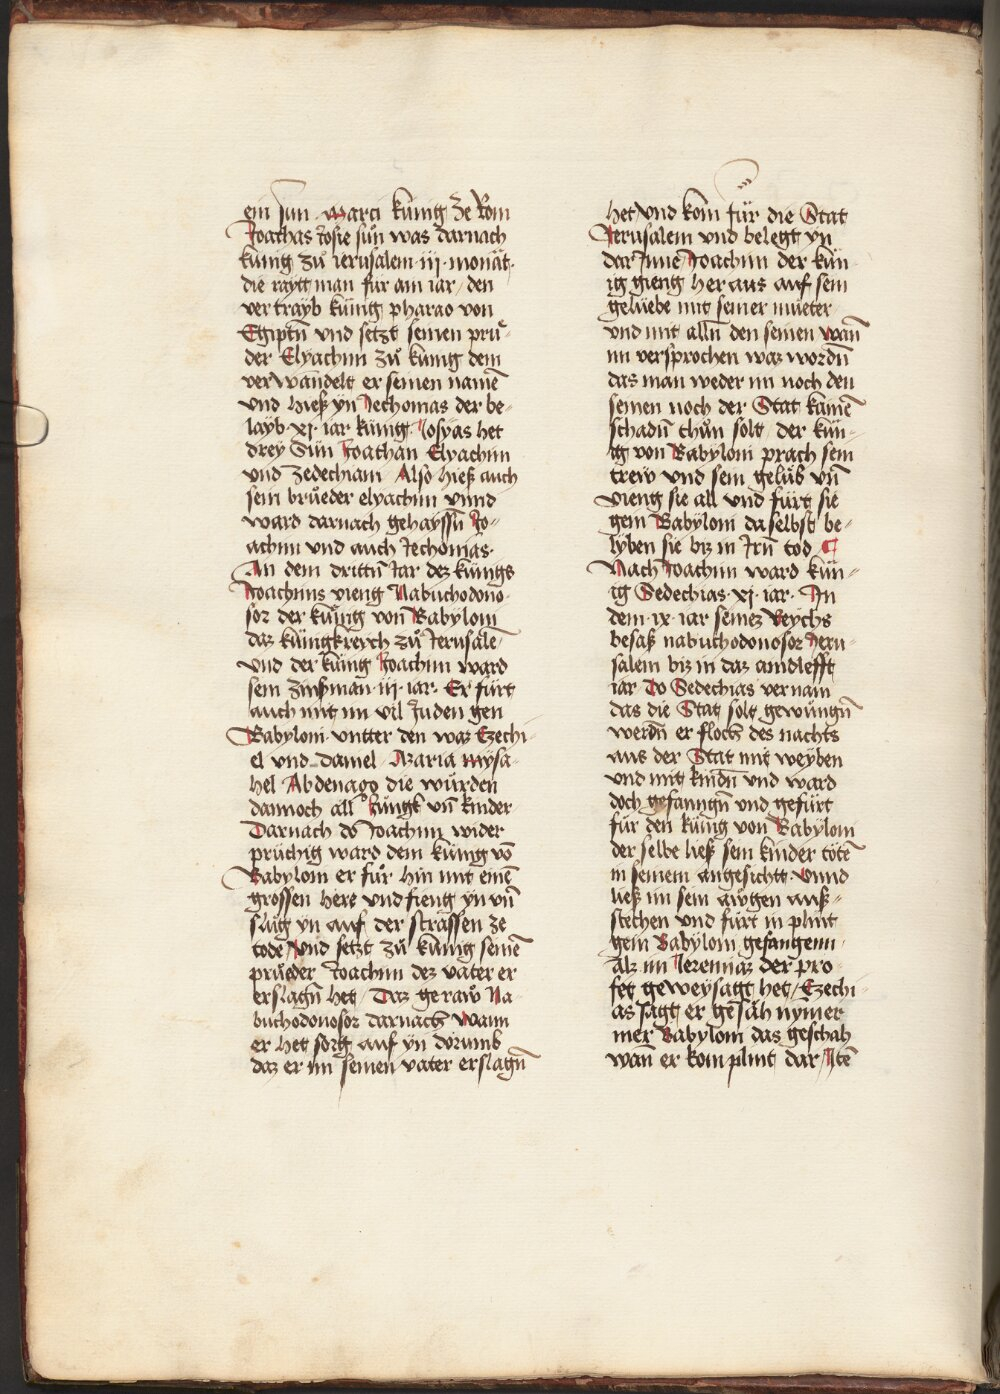 ein sun Marci künig ze Rom
Joachas Josie sůn was darnach
künig zů Jerusalem · iij · monät ·
die raytt man für ain iar / den
vertrayb künig pharao von
Egiptn̄ vnd setzt seinen prů
der Elyachim zů künig dem
verwandelt er seinen namē
vnd hieß yn Jechonias der be-
layb · xj · iar künig · Josyas het
drey Sün Joathan Elyachim
vnd Zedechiam Also hieß auch
sein brůeder elyachim vnnd
ward darnach gehayssn̄ Jo-
achim vnd auch Jechonias ·
An dem drittn̄ Jar dez künigs
Joachims vieng Nabuchodono-
sor der künig von Babÿloni
daz künigkreych zů Jerusalē /
vnd der künig Joachim ward
sein zinßman · iij · iar · Er fürt
auch mit im vil Juden gen
Babyloni · vntter den waz Ezechi-
el vnd daniel / Azaria mÿsa-
hel Abdenago die würden
dannoch all künigs vn̄ kinder
Darnach do Joachim wider
prüchig ward dem künig vō
Babyloni er fůr hin mit einē
grossen here vnd fieng yn vn̄
slůg yn auf der strassen ze
tode / vnd setzt zů künig seinē
průeder Joachim dez vater er
erslagn̄ het / Daz geraw Na-
buchodonosor darnach wann
er het sorg auf yn dorumb
daz er im seinen vater erslagn̄
het vnd kom für die Stat
Jerusalem vnd belegt yn
dar Jnne / Joachim der kün-
ig gieng heraus auf sein
gelüebe mit seiner můeter
vnd mit alln̄ den seinen wan̄
im versprochen waz wordn̄
das man weder im noch den
seinen noch der Stat kainē
schadn̄ thůn solt / der kün-
ig von Babyloni prach sein
trew vnd sein gelüb vn̄
vieng sie all vnd fürt sie
gein Babyloni daselbst be-
lyben sie biz in Jrn̄ tod
Nach Joachim ward kün-
ig Sedechias · xj · iar · Jn
dem · ix · iar seinez Reychs
besaß nabuchodonosor Jeru-
salem biz in daz aindlefft
iar Do Sedechias vernam
das die Stat solt gewungn̄
werdn̄ er floch des nachts
aus der Stat mit weyben
vnd mit kindn̄ vnd ward
doch gefanngn̄ vnd gefürt
für den künig von Babyloni
der selbe ließ sein kinder tötē
in seinem angesichtt vnnd
ließ im sein awgen auß-
stechen vnd fürt in plint
gein Babyloni gefangenn ·
Alz im Jeremiaz der pro-
fet geweysagt het / Ezechi-
as sagt er gesäh nymer
mer Babyloni das geschah
wan̄ er kom plint dar / Jtē